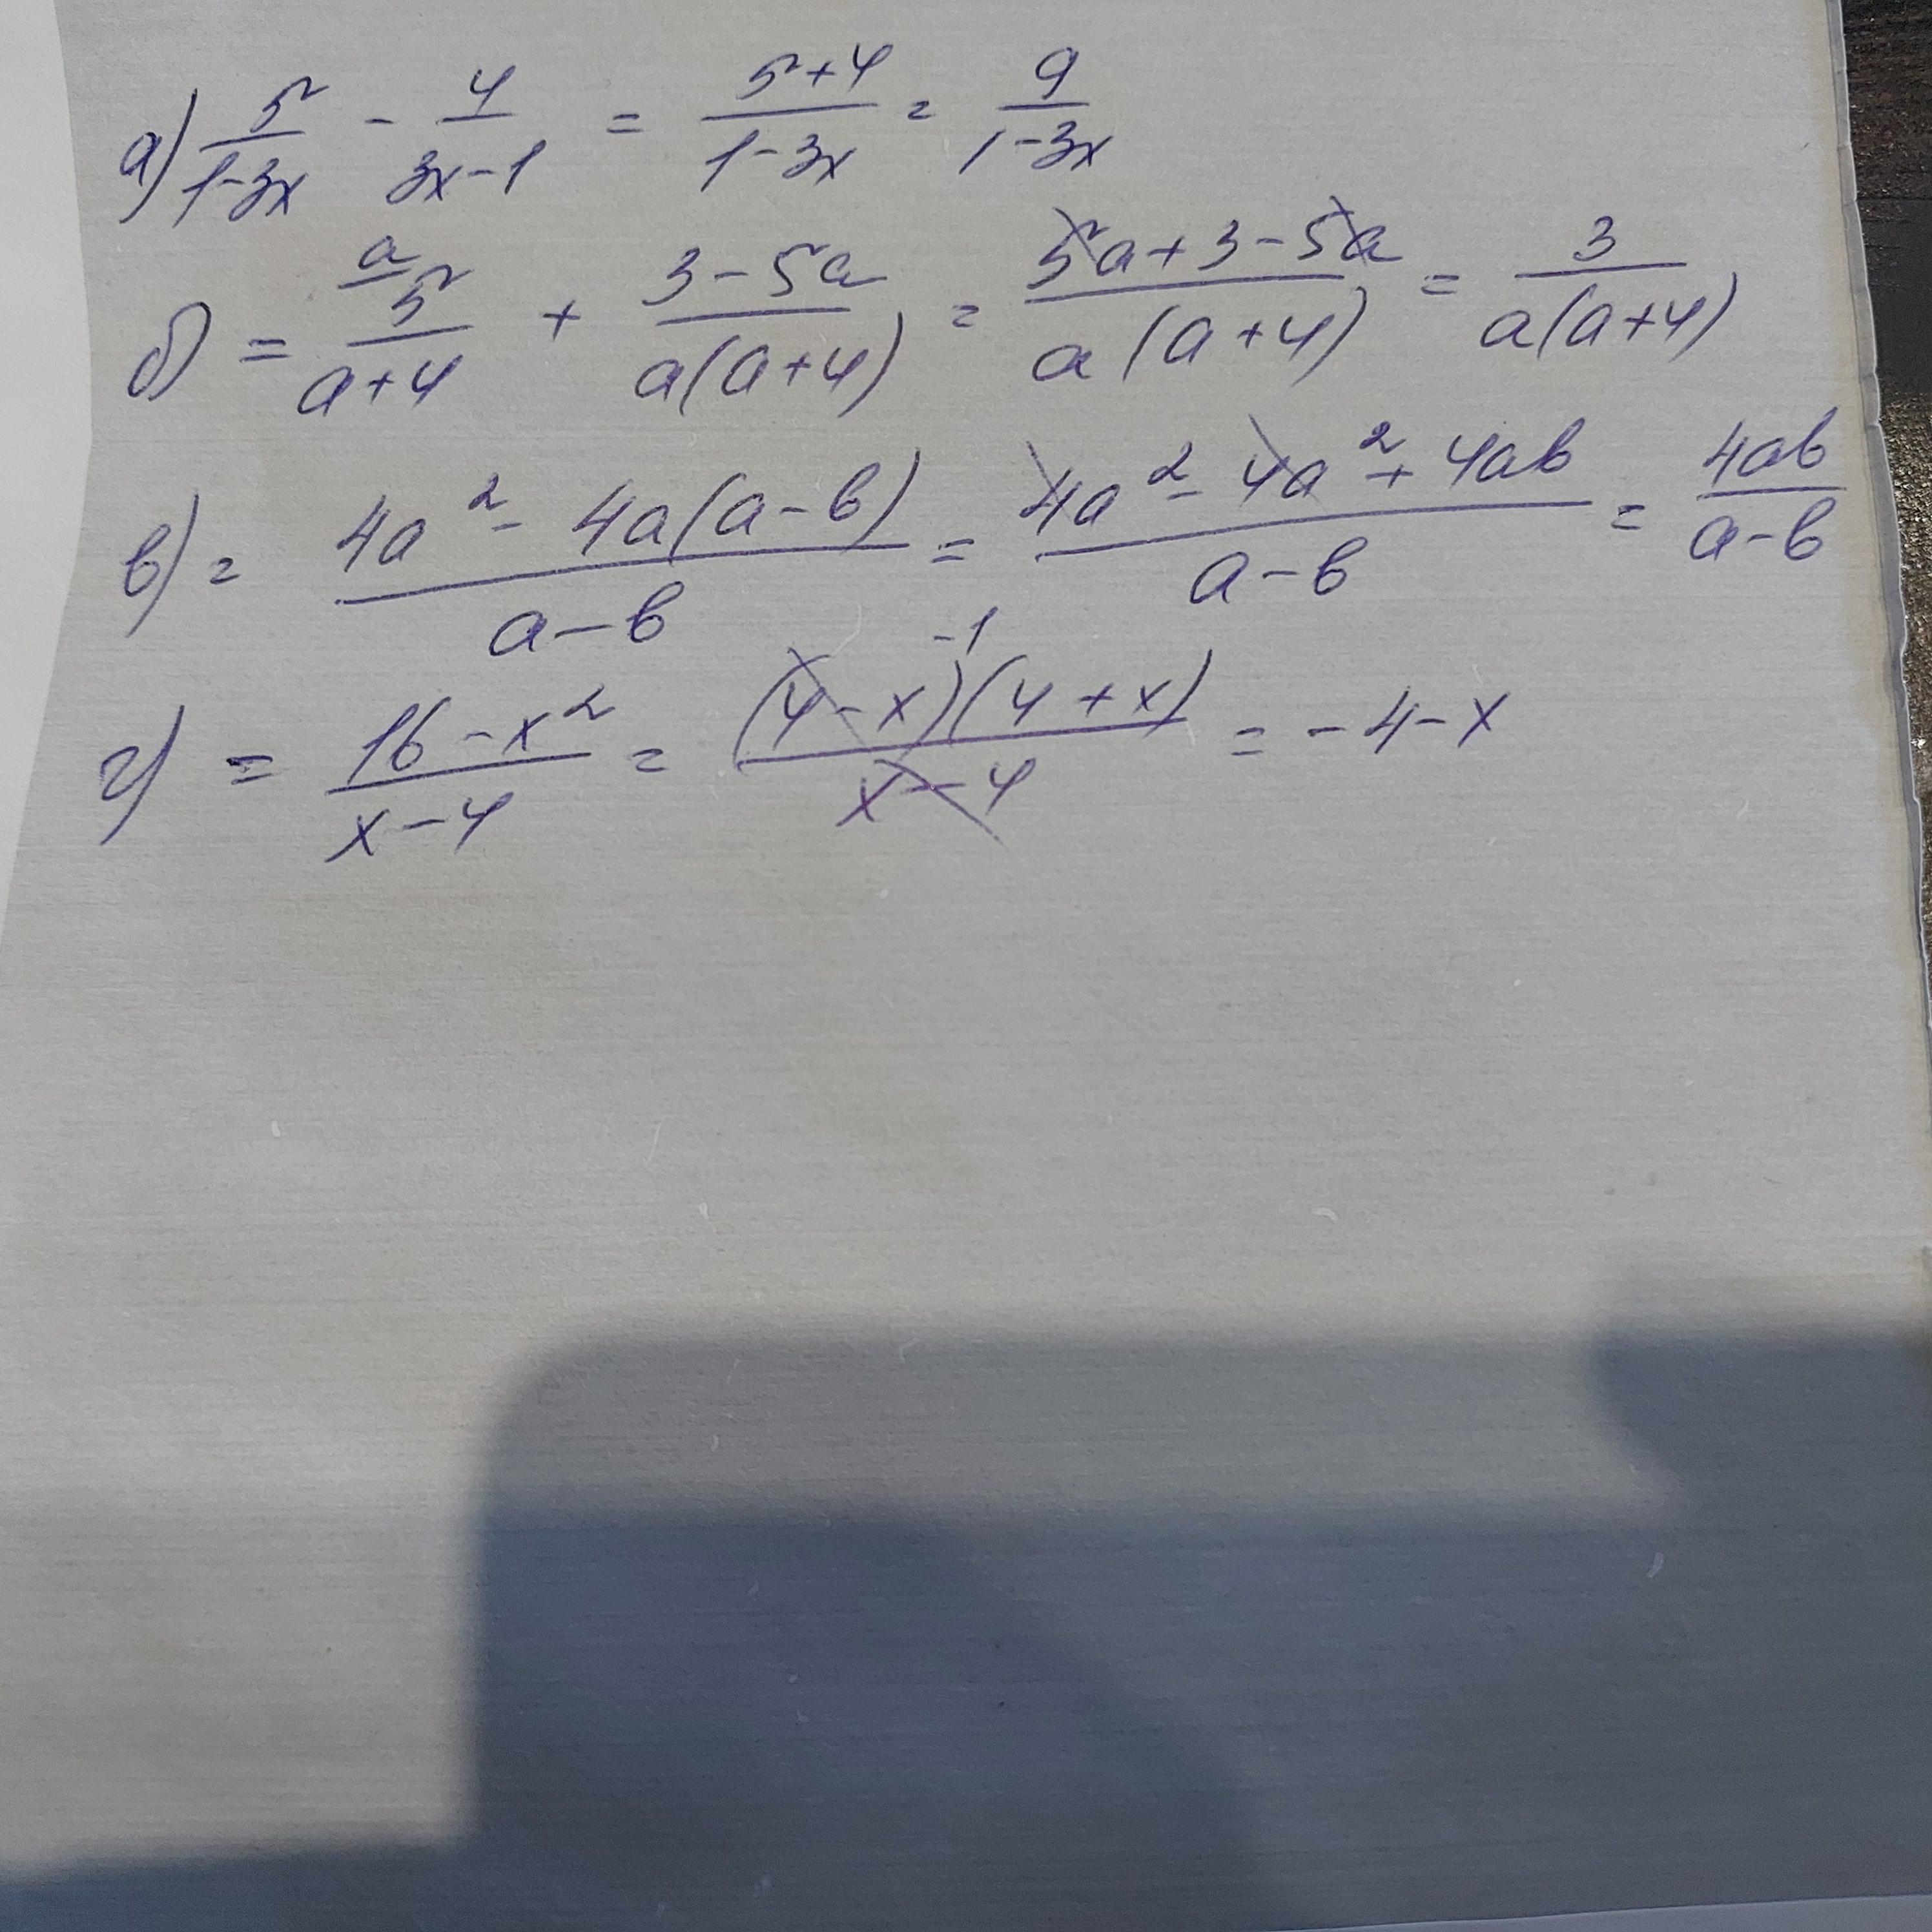 а) 5/(1-3x) - 4/(3x-1) = (5+4)/(1-3x) = 9/(1-3x)
б) = a 5/(a+4) + (3-5a)/(a(a+4)) = (5a+3-5a)/(a(a+4)) = 3/(a(a+4))
в) = (4a² - 4a(a-b))/(a-b) = (4a² - 4a² + 4ab)/(a-b) = 4ab/(a-b)
г) = (16-x²)/(x-4) = ((4-x)⁻¹(4+x))/(x-4) = -4-x